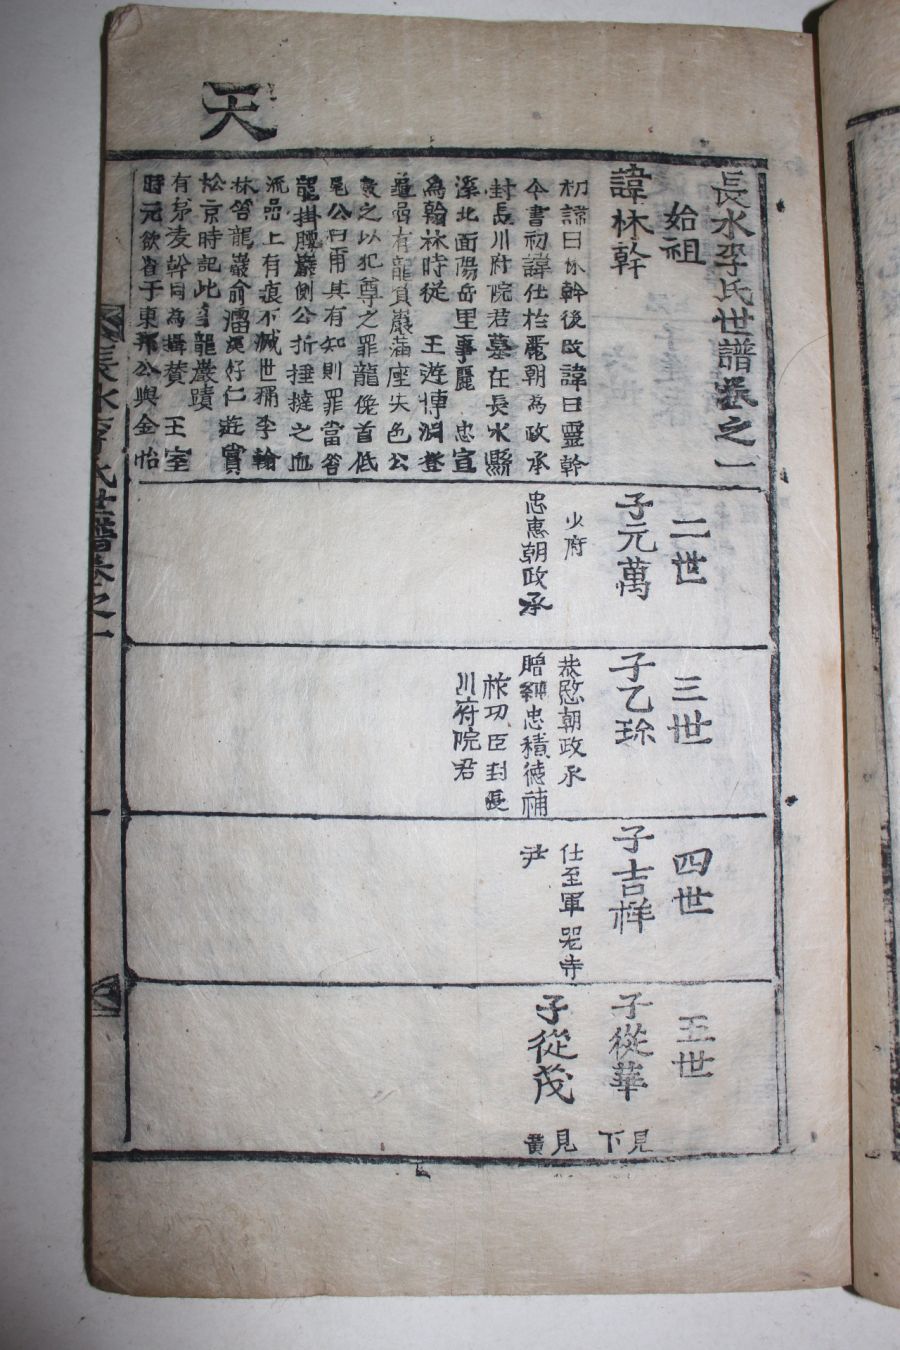 天
長水李氏世譜卷之一
始祖
諱林幹
初諱曰林幹後改諱曰靈幹
今書初諱仕於麗朝為政丞
封長川府院君墓在長水縣
溪北面陽岳里事麗 忠宣
為翰林時從 王遊博淵登
疊岩有龍負巖滿座失色公
數之以犯尊之罪龍俛首低
尾公曰甭其有知則罪當笞
龍掛腰巖側公折捶撻之血
流岩上有痕不滅世稱李翰
林笞龍巖俞㵢溪好仁遊賞
松京時記此 龍巖蹟
有茅凌幹同為攝贊 王室
時元欲省于東邦公與金怡
二世
子元萬
少府
忠惠朝政丞
三世
子乙珎
恭愍朝政丞
贈純忠積德補
祚功臣封長
川府院君
四世
子吉祥
仕至軍器寺
尹
五世
子從華
見下
子從茂
見黃
長水李氏世譜卷之一
一